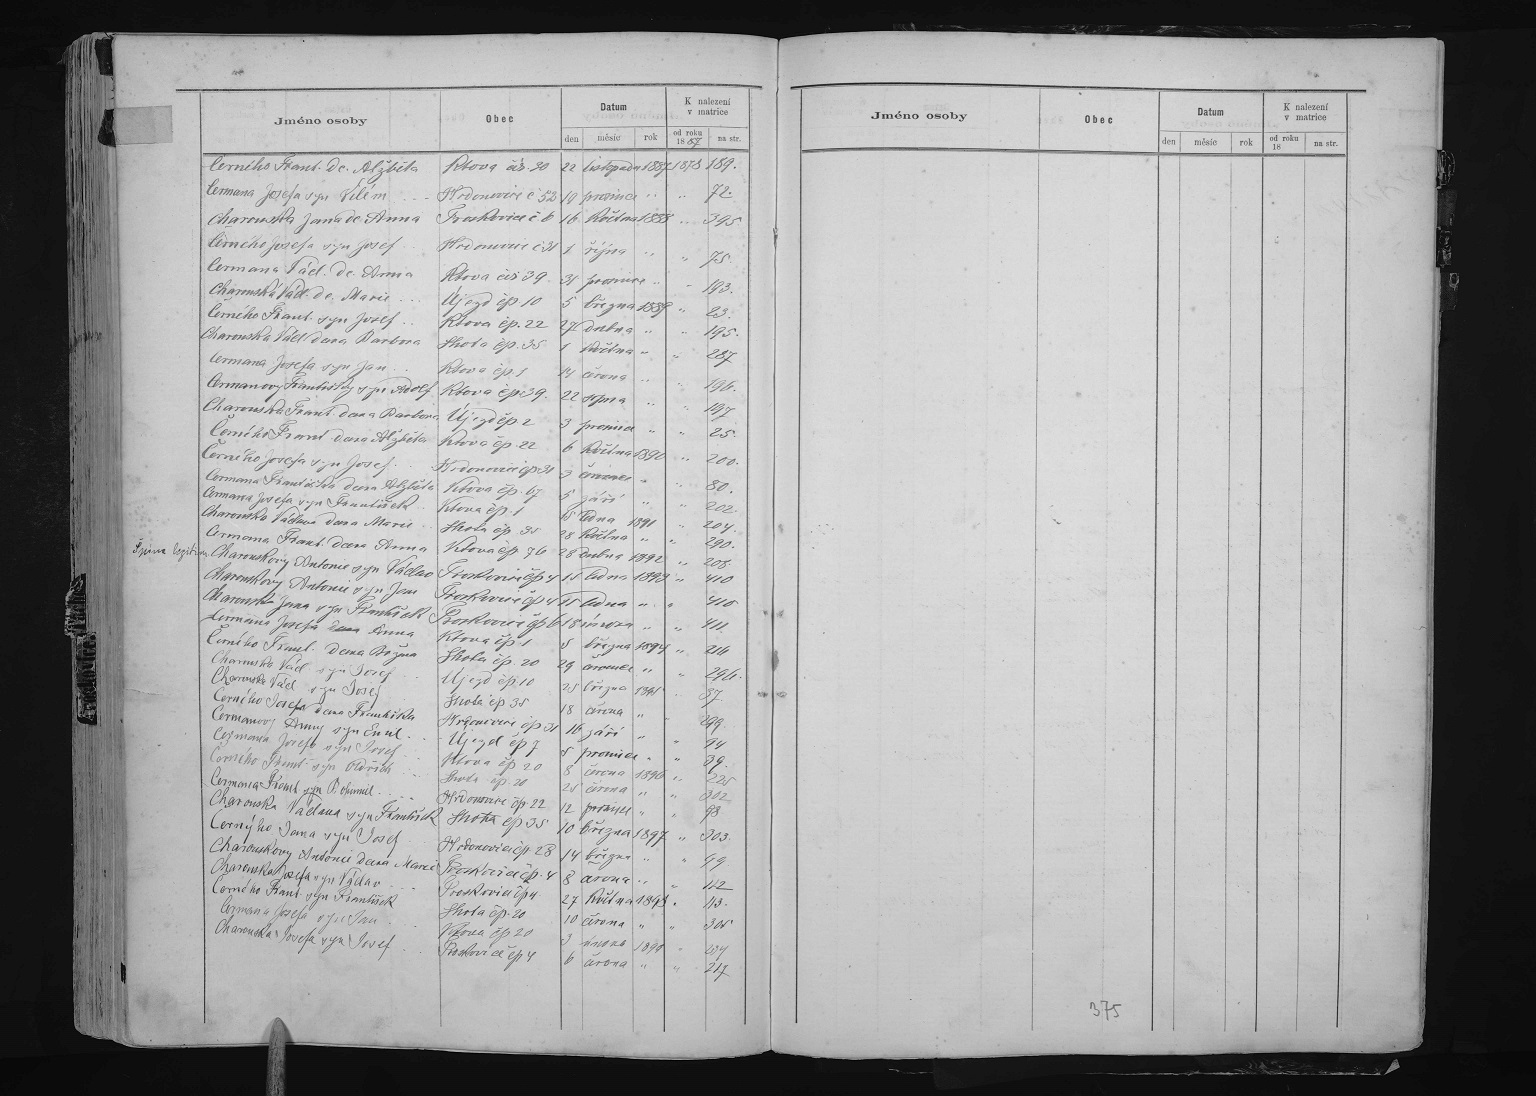 Jméno osoby Obec Datum K nalezení v matrice
den měsíc rok od roku 1887 na str.
Jméno osoby Obec Datum K nalezení v matrice
den měsíc rok od roku 18 na str.
Černého Frant. dc. Alžběta Ktova čís. 30 22 listopada 1887 1878 189.
Čermana Josefa syn Vilém Hrdonovice č 53 19 prosince " " 72.
Charouska Jana dc. Anna Troskovice č 6 16 května 1888 " 395
Černého Josefa syn Josef Hrdonovice č 31 1 října " " 75.
Čermana Václ. dc. Anna Ktova čís 39. 31 prosince " " 193.
Charouska Václ. dc. Marie Újezd čp. 10 5 března 1889 " 23.
Černého Frant. syn Josef Ktova čp. 22 27 dubna " " 195.
Charouska Václ dcera Barbora Lhota čp. 35 1 května " " 287
Čermana Josefa syn Jan Ktova čp. 1 14 června " " 196.
Čermanovy Františky syn Adolf Ktova čp. 39. 22 srpna " " 197
Charouska Frant. dcera Barbora Újezd čp 2 3 prosince " " 25.
Černého Frant dcera Alžběta Ktova čp. 22 6 května 1890 " 200.
Černého Josefa syn Josef Hrdonovice čp 31 3 července " " 80.
Čermana Františka dcera Alžběta Ktova čp. 67 5 září " " 202.
Čermana Josefa syn František Ktova čp. 1 15 ledna 1891 " 204.
Charouska Václava dcera Marie Lhota čp. 35 28 května " " 290.
Čermana Frant. dcera Anna Ktova čp 76 28 dubna 1892 " 208
Charouskovy Antonie syn Václav Troskovice čp 4 15 ledna 1893 " 410
Charouskovy Antonie syn Jan Troskovice čp 4 15 ledna " " 410
Charouska Jana syn František Troskovice čp 6 18 února " " 411
Čermana Josefa dcera Anna Ktova čp. 1 5 března 1894 " 216
Černého Frant. dcera Božena Lhota čp. 20 29 července " " 296.
Charouska Václ. syn Josef Újezd čp. 10 25 března 1895 37
Charouska Václ syn Josef Lhota čp 35 18 června " 299.
Černého Josefa dcera Františka Hrdonovice čp 31 16 září " " 94
Čermanovy Anny syn Emil Újezd čp 7 8 prosince " " 39.
Čermana Josefa syn Josef Ktova čp 20 8 června 1896 " 225
Černého Frant syn Lhota čp. 20 25 června " " 302
Čermana Frant syn Bohumil Hrdonovice čp. 22 12 prosince " " 98
Charouska Václava syn František Lhota čp 35 10 března 1897 " 303.
Černýho Jana syn Josef Hrdonovice čp. 28 14 března " " 99
Charouskovy Antonie dcera Marie Troskovice čp. 4 8 června " " 112
Charouska Josefa syn Václav Troskovice čp 4 27 května 1898 " 113.
Černého Frant syn František Lhota čp. 20 10 června " " 305
Čermana Josefa syn Jan Ktova čp 20 3 února
Charouska Josefa syn Josef Troskovice čp 4 6 června " " 217
375